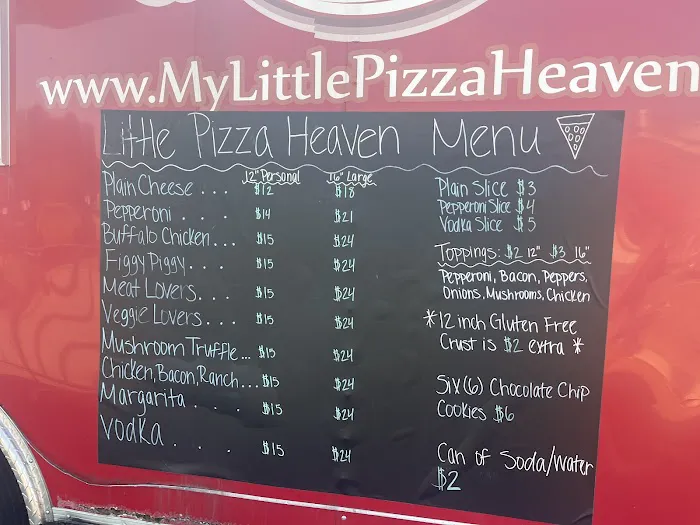 www.MyLittlePizzaHeaven
Little Pizza Heaven Menu
12" Personal 16" Large
Plain Cheese . . . $12 $18
Pepperoni . . . . $14 $21
Buffalo Chicken... $15 $24
Figgy Piggy. . . . $15 $24
Meat Lovers. . . $15 $24
Veggie Lovers. . . $15 $24
Mushroom Truffle... $15 $24
Chicken, Bacon, Ranch... $15 $24
Margarita . . . . $15 $24
Vodka . . . . $15 $24
Plain Slice $3
Pepperoni Slice $4
Vodka Slice $5
Toppings: $2 12" $3 16"
Pepperoni, Bacon, Peppers,
Onions, Mushrooms, Chicken
*12 inch Gluten Free
Crust is $2 extra *
Six (6) Chocolate Chip
Cookies $6
Can of Soda/Water
$2